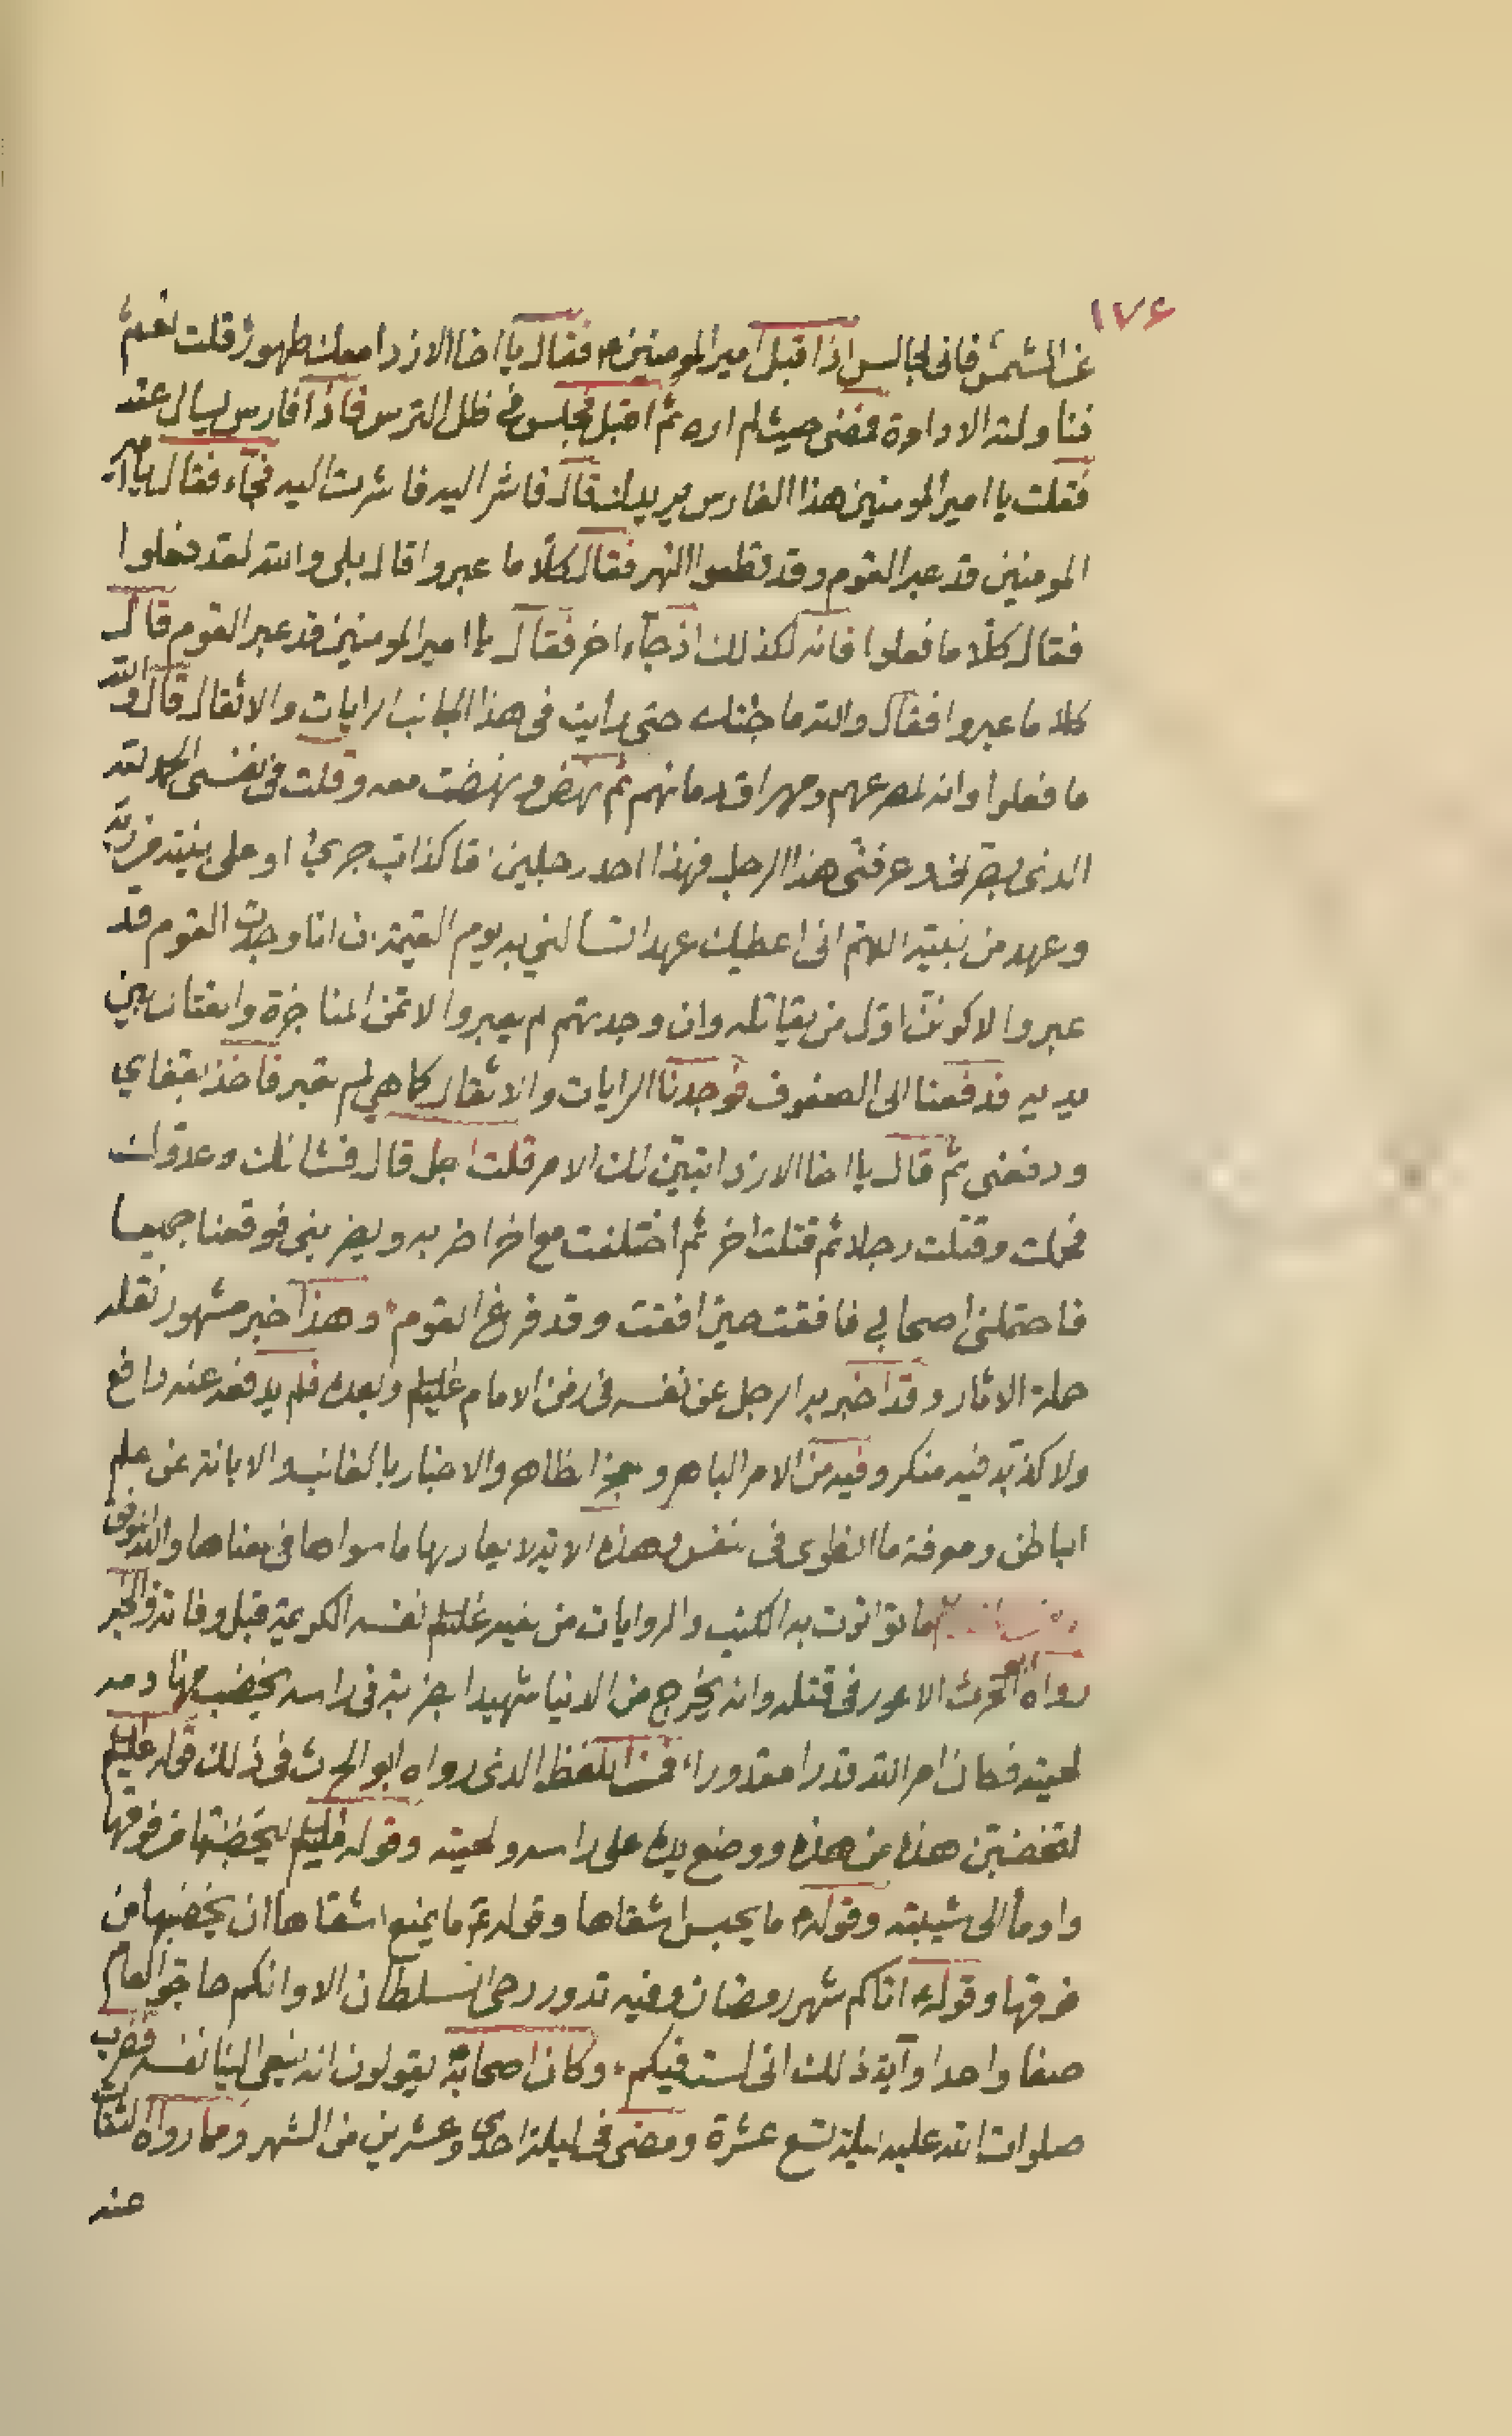 ١٧٤
عن الشمس فانى لجالس اذا قبل امير المومنين ع فقال يا اخا الازد امعك طهور قلت نعم
فناولته الاداوة فمضى حيث لم اره ثم اقبل فجلس فى ظل الترس فاذا فارس يسال عنه
فقلت يا امير المومنين هذا الفارس يريدك قال فاشر اليه فاشرت اليه فجاء فقال يا امير
المومنين قد عبر القوم وقد قطعوا النهر فقال كلا ما عبروا قال بلى والله لقد فعلوا
فقال كلا ما فعلوا فانه لكذلك اذ جاء اخر فقال يا امير المومنين قد عبر القوم قال
كلا ما عبروا فقال والله ما جئتك حتى رايت فى هذا الجانب الرايات والاثقال قال والله
ما فعلوا وانه لمصرعهم ومهراق دمائهم ثم نهض ونهضت معه وقلت فى نفسى الحمد لله
الذى بصرنى وعرفنى هذا الرجل فهذا احد رجلين اما كذاب جرئ او على بينة من ربه
وعهد من نبيه اللهم انى اعطيك عهدا تسالنى به يوم القيمة ان انا وجدت القوم قد
عبروا لاكونن اول من يقاتله وان وجدتهم لم يعبروا لاتمن المناجزة والقتال بين
يديه فدفعنا الى الصفوف فوجدنا الرايات والاثقال كما هي لم تعبر فاخذ بقفاي
ودفعنى ثم قال يا اخا الازد اتبين لك الامر قلت اجل قال فشانك وعدوك
فحملت وقتلت رجلا ثم قتلت اخر ثم اختلفت مع اخر اضربه ويضربنى فوقعنا جميعا
فاحتملنى اصحابي فافقت حين افقت وقد فرغ القوم وهذا خبر مشهور نقله
حملة الاثار وقد اخبر به الرجل عن نفسه فى زمن الامام عليلم وبعده فلم يدفعه عنه دافع
ولا كذبه فيه منكر وفيه من الامر الباهر و الظاهر والاخبار بالغائب والابانة عن علم
الباطن ومعرفة ما انطوى فى نفس وهذه الاية لا يعادلها ما سواها فى معناها والله الموفق
ما تواترت به الكتب والروايات من نعيه عليلم نفسه الكريمة قبل وفاته والخبر
رواه ابو الحرث الاعور فى قتله وانه يخرج من الدنيا شهيدا بضربة فى راسه يخضب منها دمه
لحيته فكان امر الله قدرا مقدورا فمن اللفظ الذى رواه ابو الحرث فى ذلك قوله عليلم
لتخضبن هذه من هذه ووضع يده على راسه ولحيته وقوله عليلم ليخضبنها من فوقها
واومأ الى شيبته وقوله ع ما يحبس اشقاها وقوله ع ما يمنع اشقاها ان يخضبها من
فوقها وقوله ع اتاكم شهر رمضان وفيه تدور رحى السلطان الا وانكم حاجوا العام
صفا واحدا وآية ذلك انى لست فيكم وكان اصحابه يقولون انه ينعى الينا نفسه فضرب
صلوات الله عليه ليلة تسع عشرة ومضى فى ليلة احدى وعشرين من الشهر ومما رواه الثقات
عنه